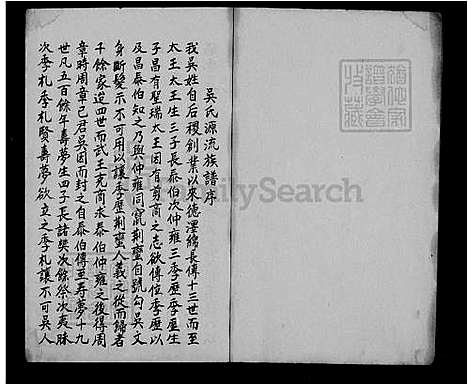 吳氏源流族譜序
我吳姓自后稷創業以來德澤綿長傳十三世而至
太王太王生三子長泰伯次仲雍三季歷季歷生
子昌有聖瑞太王因有剪商之志欲傳位季歷以
及昌泰伯知之乃與仲雍同竄荊蠻自號勾吳文
身斷髮示不可用以讓季歷荊蠻人義之從而歸者
千餘家迨四世而武王克商求泰伯仲雍之後得周
章時周章已君吳因而封之自泰伯傳至壽夢十九
世凡五百餘年壽夢生四子長諸樊次餘祭次夷昧
次季札季札賢壽夢欲立之季札讓不可吳人
FamilySearch